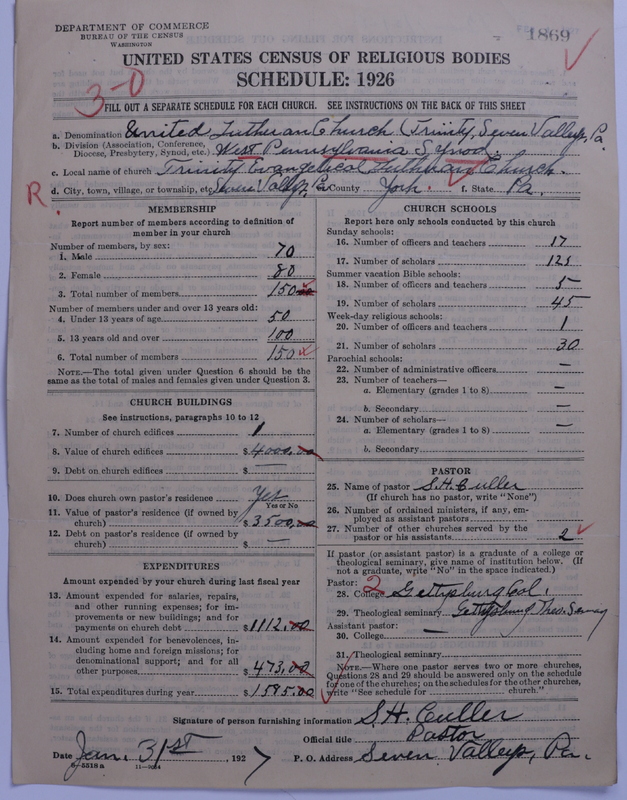 DEPARTMENT OF COMMERCE
BUREAU OF THE CENSUS
WASHINGTON
1869
UNITED STATES CENSUS OF RELIGIOUS BODIES
SCHEDULE: 1926
3-0
FILL OUT A SEPARATE SCHEDULE FOR EACH CHURCH. SEE INSTRUCTIONS ON THE BACK OF THIS SHEET
a. Denomination United Lutheran Church (Trinity, Seven Valleys, Pa.
b. Division (Association, Conference, Diocese, Presbytery, Synod, etc.) West Pennsylvania Synod.
c. Local name of church Trinity Evangelical Lutheran Church.
R. d. City, town, village, or township, etc. Seven Valleys, Pa County York. f. State Pa.
MEMBERSHIP
Report number of members according to definition of member in your church
Number of members, by sex:
1. Male 70
2. Female 80
3. Total number of members 150
Number of members under and over 13 years old:
4. Under 13 years of age 50
5. 13 years old and over 100
6. Total number of members 150
NOTE.—The total given under Question 6 should be the same as the total of males and females given under Question 3.
CHURCH BUILDINGS
See instructions, paragraphs 10 to 12
7. Number of church edifices 1
8. Value of church edifices $ 4000.00
9. Debt on church edifices $ —
10. Does church own pastor's residence Yes
Yes or No
11. Value of pastor's residence (if owned by church) $ 3500.00
12. Debt on pastor's residence (if owned by church) $ —
EXPENDITURES
Amount expended by your church during last fiscal year
13. Amount expended for salaries, repairs, and other running expenses; for improvements or new buildings; and for payments on church debt $ 1112.00
14. Amount expended for benevolences, including home and foreign missions; for denominational support; and for all other purposes $ 473.00
15. Total expenditures during year $ 1585.00
CHURCH SCHOOLS
Report here only schools conducted by this church
Sunday schools:
16. Number of officers and teachers 17
17. Number of scholars 125
Summer vacation Bible schools:
18. Number of officers and teachers 5
19. Number of scholars 45
Week-day religious schools:
20. Number of officers and teachers 1
21. Number of scholars 30
Parochial schools:
22. Number of administrative officers —
23. Number of teachers—
a. Elementary (grades 1 to 8) —
b. Secondary —
24. Number of scholars—
a. Elementary (grades 1 to 8) —
b. Secondary
PASTOR
25. Name of pastor S.H. Culler
(If church has no pastor, write "None")
26. Number of ordained ministers, if any, employed as assistant pastors
27. Number of other churches served by the pastor or his assistants 2
If pastor (or assistant pastor) is a graduate of a college or theological seminary, give name of institution below. (If not a graduate, write "No" in the space indicated.)
Pastor: 2
28. College Gettysburg Col.
29. Theological seminary Gettysburg Theo. Seminary
Assistant pastor:
30. College —
31. Theological seminary
NOTE.—Where one pastor serves two or more churches, Questions 28 and 29 should be answered only on the schedule for one of the churches; on the schedules for the other churches, write "See schedule for church."
Signature of person furnishing information S.H. Culler
Official title Pastor
Date Jan. 31st, 1927 P. O. Address Seven Valleys, Pa.
8-5518a 11-3034